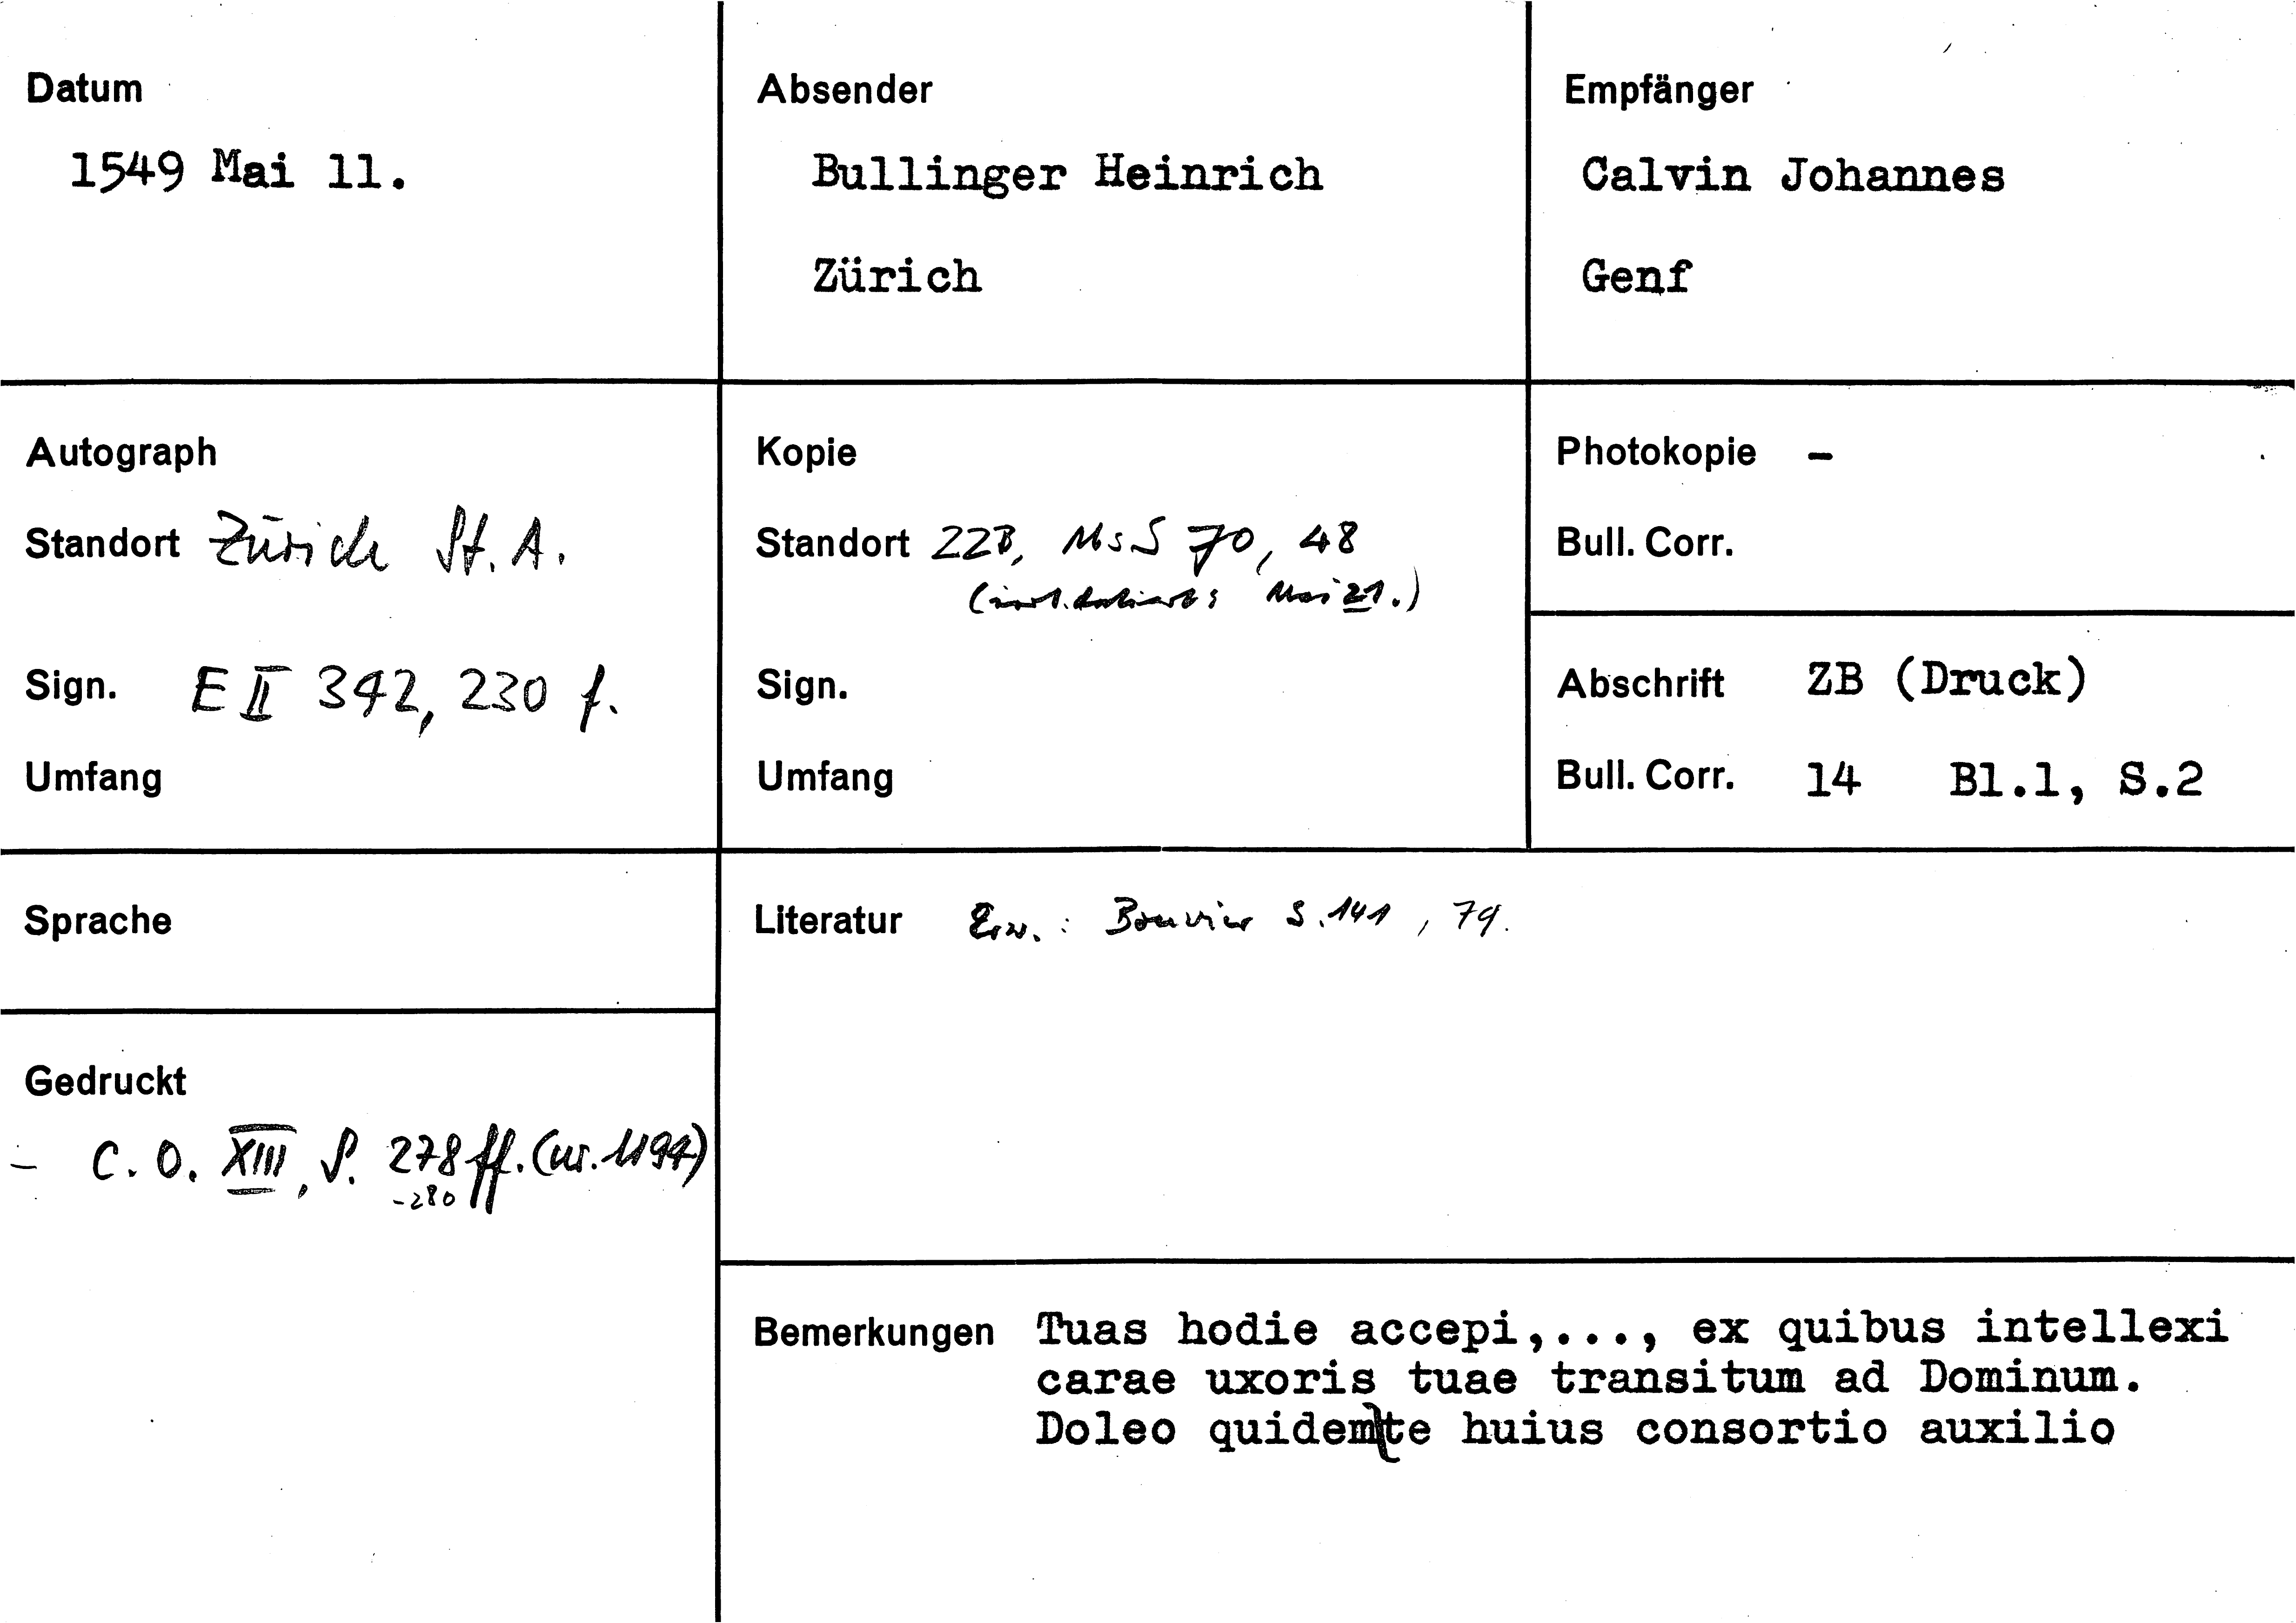 Datum
1549 Mai 11.
Absender
Bullinger Heinrich
Zürich
Empfänger
Calvin Johannes
Genf
Autograph
Standort Zürich St. A.
Sign. E II 342, 230 f.
Umfang
Kopie
Standort ZZB, Ms S 70, 48
( Mai 21.)
Sign.
Umfang
Photokopie -
Bull. Corr.
Abschrift ZB (Druck)
Bull. Corr. 14 Bl.1, S.2
Sprache
Literatur Erw.: Bouvier S. 141, 79.
Gedruckt
- C. O. XIII, S. 278 ff. (nr. 1194)
-280
Bemerkungen Tuas hodie accepi,..., ex quibus intellexi
carae uxoris tuae transitum ad Dominum.
Doleo quidem te huius consortio auxilio